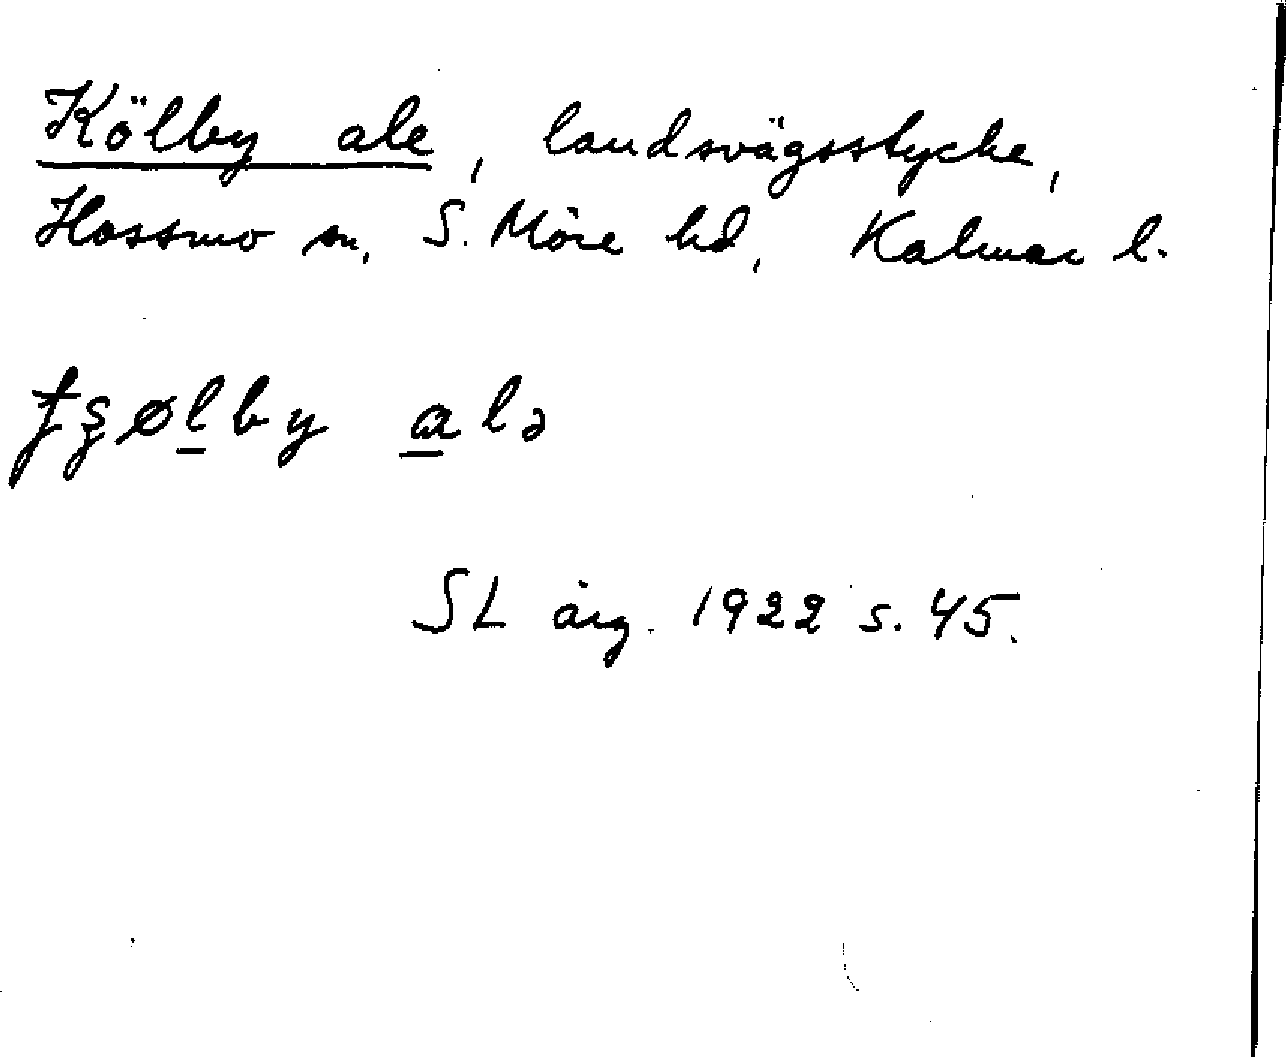 Kölby ale, landsvägsstycke,
Hossmo sn, S. Möre hd, Kalmar l.
ʈʂølby alə
SL årg. 1922 s. 45.